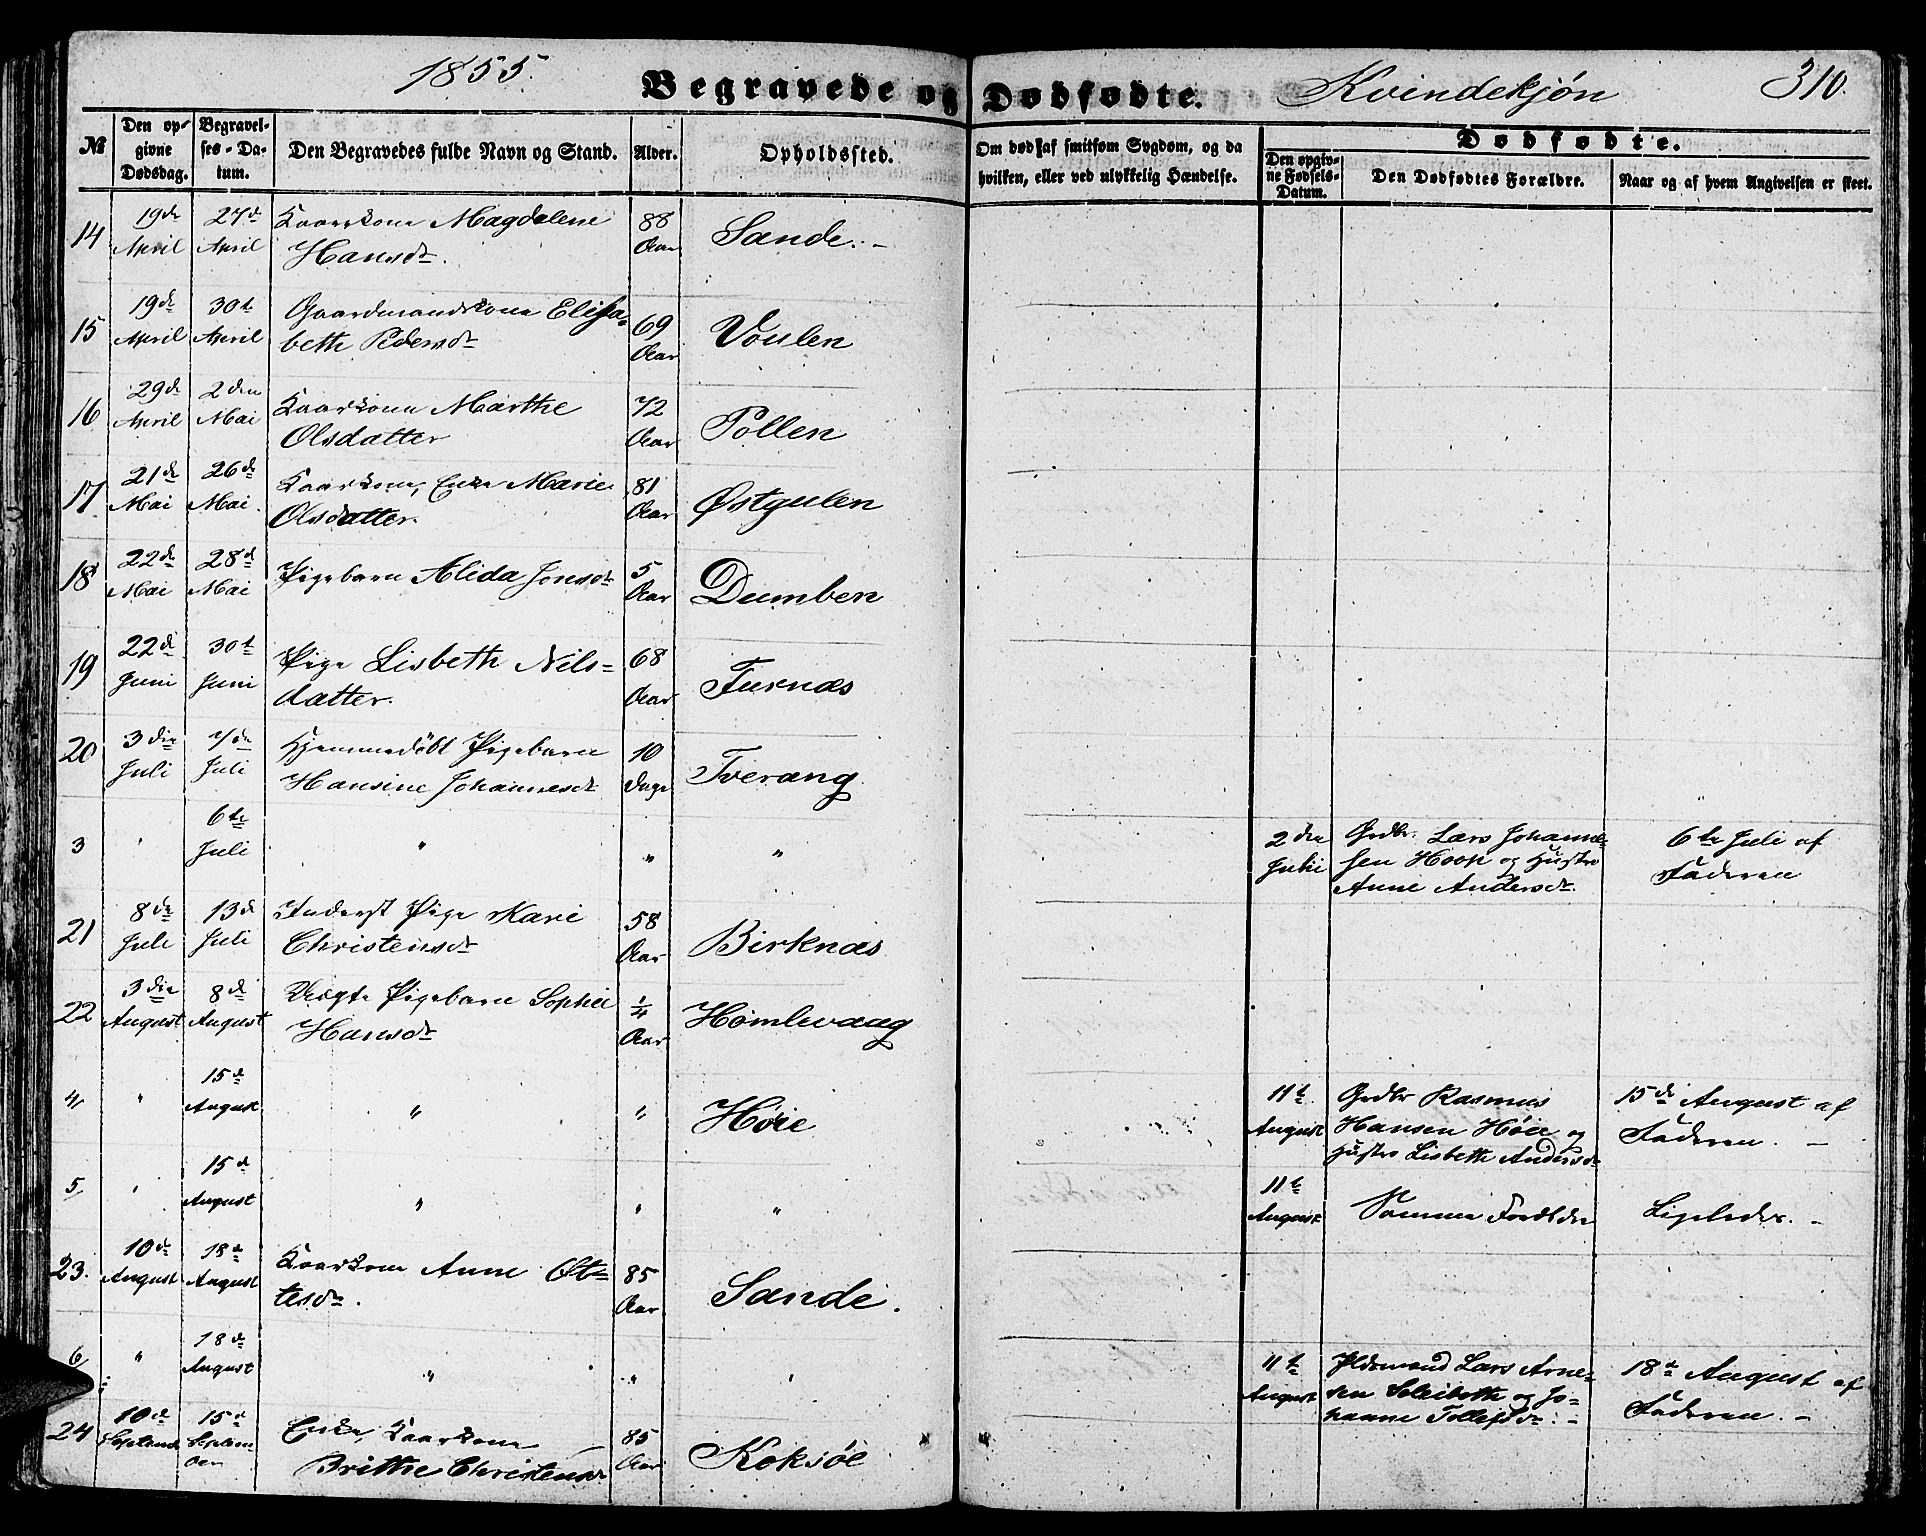 1855.
Begravede og Dødfødte.
Kvindekjøn
310.
№
Den opgivne Dødsdag.
Begravelses-Datum.
Den Begravedes fulde Navn og Stand.
Alder.
Opholdssted.
Om død af smitsom Sygdom, og da hvilken, eller ved ulykkelig Hændelse.
Dødfødte.
Den opgivne Fødsels-Datum.
Den Dødfødtes Forældre.
Naar og af hvem Angivelsen er skeet.
14 19de April 27de April Kaarkone Magdalene Hansdr. 88 Aar Sande.-
15 19de April 30te April Gaardmandskone Elisabeth Pedersdr 69 Aar Voulen
16 29de April 2den Mai Kaarkone Marthe Olsdatter 72 Aar Pollen
17 21de Mai 26de Mai. Kaarkone, Enke Marie Olsdatter. 81 Aar Østgulen
18 22de Mai 28de Mai Pigebarn Alida Jonsdr 5 Aar Dumben
19 22de Juni 30te Juni Pige Lisbeth Nilsdatter. 68 Aar Furnæs
20 3die Juli 7de Juli Hjemmedøbt Pigebarn Hansine Johannesdr 10 Dage Tverang
3 " 6te Juli " " " 2den Juli Grdbr. Lars Johannessen Hoop og Hustro Anne Andersdr. 6te Juli af Faderen
21 8de Juli 13de Juli Inderst Pige Kari Christensdr 58 Aar Birknæs
22 3die August 8de August Uægte Pigebarn Sophie Hansdr 1/4 Aar Homlevaag
4 " 15de August " " Høie 11te August Grdbr Rasmus Hansen Høie og Hustro Lisbeth Andersdr 15de August af Faderen. -
5 " 15de August " " " 11te August Samme Forældre Ligeledes. -
23. 10de August 18de August Kaarkone Anne Ottesdr. 85 Aar Sande.
6 " 18de August " " " 11te August Lars Arnesen og Johanne Tollefsdr. - 18de August af Faderen. -
24 10de Septemb 15de September Enke, Kaarkone Brithe Christensdr 85 Aar Koksøe